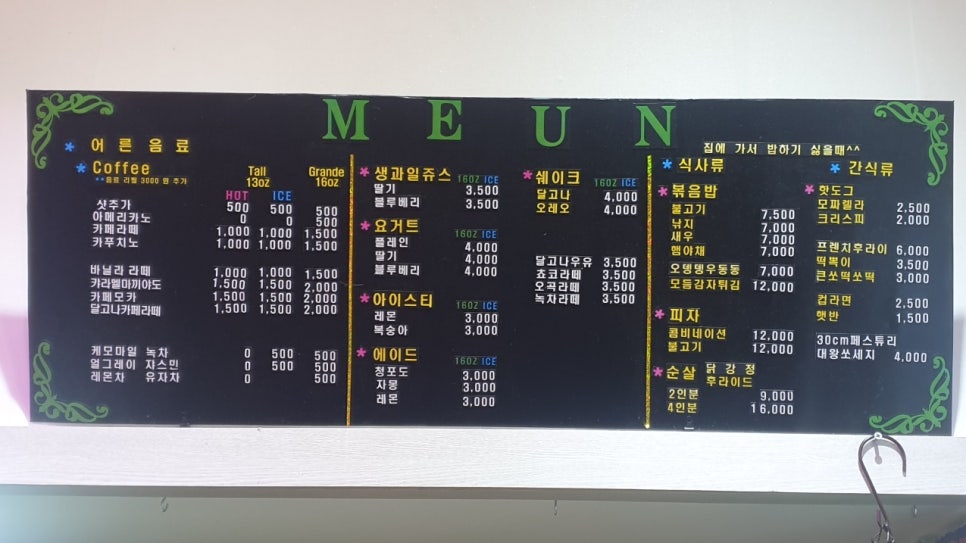 MEUN
* 어른 음료
* Coffee
**음료 리필 3000 원 추가
Tall 13oz Grande 16oz
HOT ICE
샷추가 500 500 500
아메리카노 0 0 500
카페라떼 1,000 1,000 1,500
카푸치노 1,000 1,000 1,500
바닐라 라떼 1,000 1,000 1,500
카라멜마끼아도 1,500 1,500 2,000
카페모카 1,500 1,500 2,000
달고나카페라떼 1,500 1,500 2,000
케모마일 녹차 0 500 500
얼그레이 쟈스민 0 500 500
레몬차 유자차 0 500
* 생과일쥬스 16OZ ICE
딸기 3,500
블루베리 3,500
* 요거트 16OZ ICE
플레인 4,000
딸기 4,000
블루베리 4,000
* 아이스티 16OZ ICE
레몬 3,000
복숭아 3,000
* 에이드 16OZ ICE
청포도 3,000
자몽 3,000
레몬 3,000
* 쉐이크 16OZ ICE
달고나 4,000
오레오 4,000
달고나우유 3,500
쵸코라떼 3,500
오곡라떼 3,500
녹차라떼 3,500
집에 가서 밥하기 싫을때^^
* 식사류
* 볶음밥
불고기 7,500
낚지 7,000
새우 7,000
햄야채 7,000
오뎅뎅우동동 7,000
모듬감자튀김 12,000
* 피자
콤비네이션 12,000
불고기 12,000
* 순살 닭 강 정
후라이드
2인분 9,000
4인분 16,000
* 간식류
* 핫도그
모짜렐라 2,500
크리스피 2,000
프렌치후라이 6,000
떡볶이 3,500
큰쏘떡쏘떡 3,000
컵라면 2,500
햇반 1,500
30cm페스튜리
대왕쏘세지 4,000